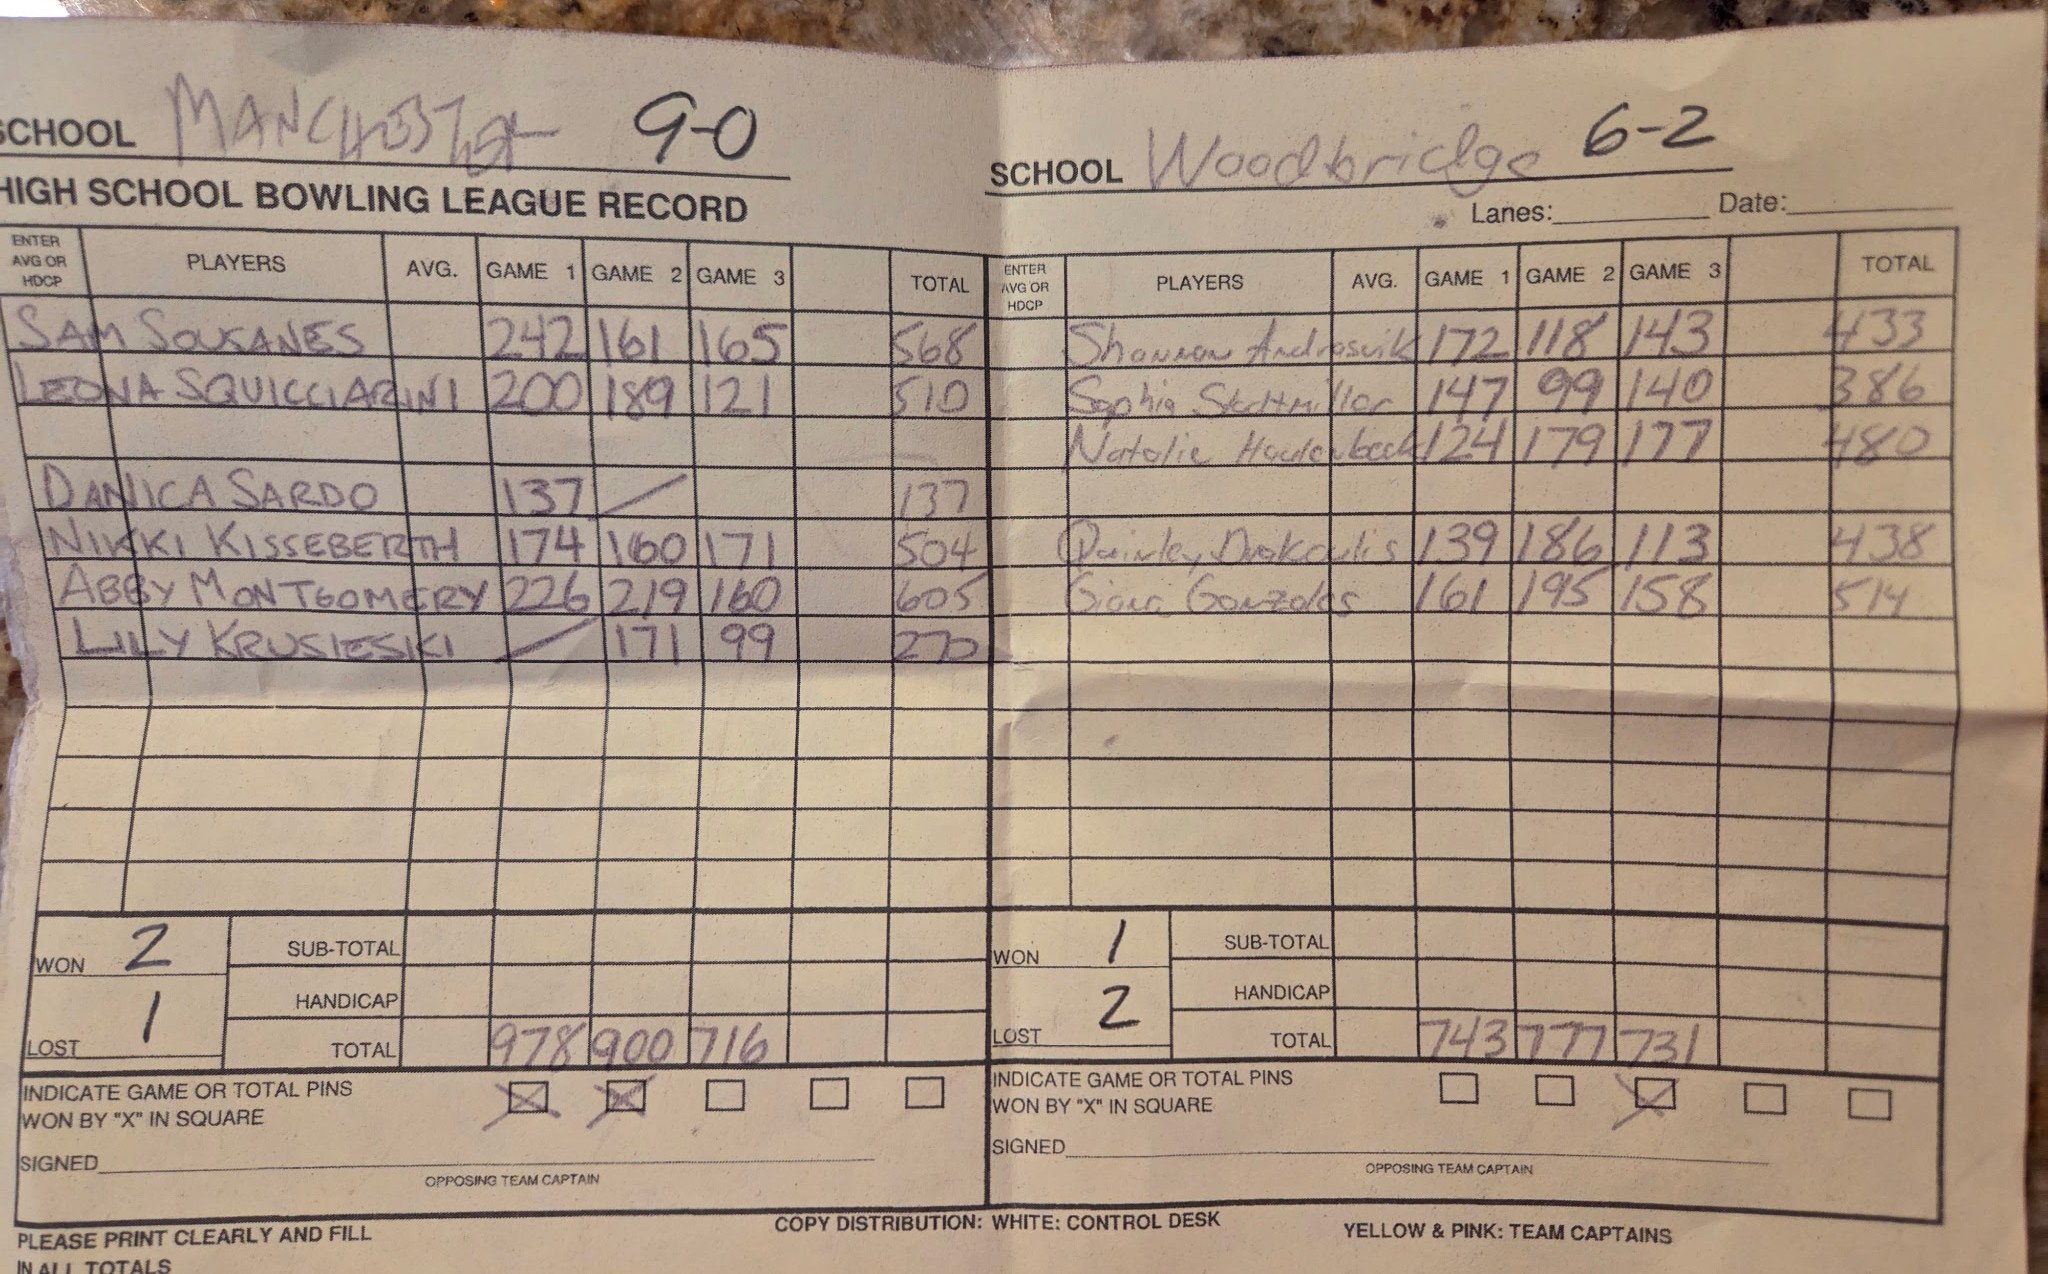 SCHOOL MANCHESTER 9-0
HIGH SCHOOL BOWLING LEAGUE RECORD
ENTER AVG OR HDCP PLAYERS AVG. GAME 1 GAME 2 GAME 3 TOTAL
SAM SOUSANES 242 161 165 568
LEONA SQUICCIARINI 200 189 121 510
DANICA SARDO 137 / 137
NIKKI KISSEBERTH 174 160 171 504
ABBY MONTGOMERY 226 219 160 605
LILY KRUSIESKI / 171 99 270
WON 2 SUB-TOTAL
HANDICAP
LOST 1 TOTAL 978 900 716
INDICATE GAME OR TOTAL PINS
WON BY "X" IN SQUARE X X
SIGNED
OPPOSING TEAM CAPTAIN
SCHOOL Woodbridge 6-2
Lanes: Date:
ENTER AVG OR HDCP PLAYERS AVG. GAME 1 GAME 2 GAME 3 TOTAL
Shannon 172 118 143 433
Sophia 147 99 140 386
Natalie 124 179 177 480
139 186 113 438
Gonzales 161 195 158 514
WON 1 SUB-TOTAL
HANDICAP
LOST 2 TOTAL 743 777 731
INDICATE GAME OR TOTAL PINS
WON BY "X" IN SQUARE X
SIGNED
OPPOSING TEAM CAPTAIN
PLEASE PRINT CLEARLY AND FILL
IN ALL TOTALS
COPY DISTRIBUTION: WHITE: CONTROL DESK YELLOW & PINK: TEAM CAPTAINS